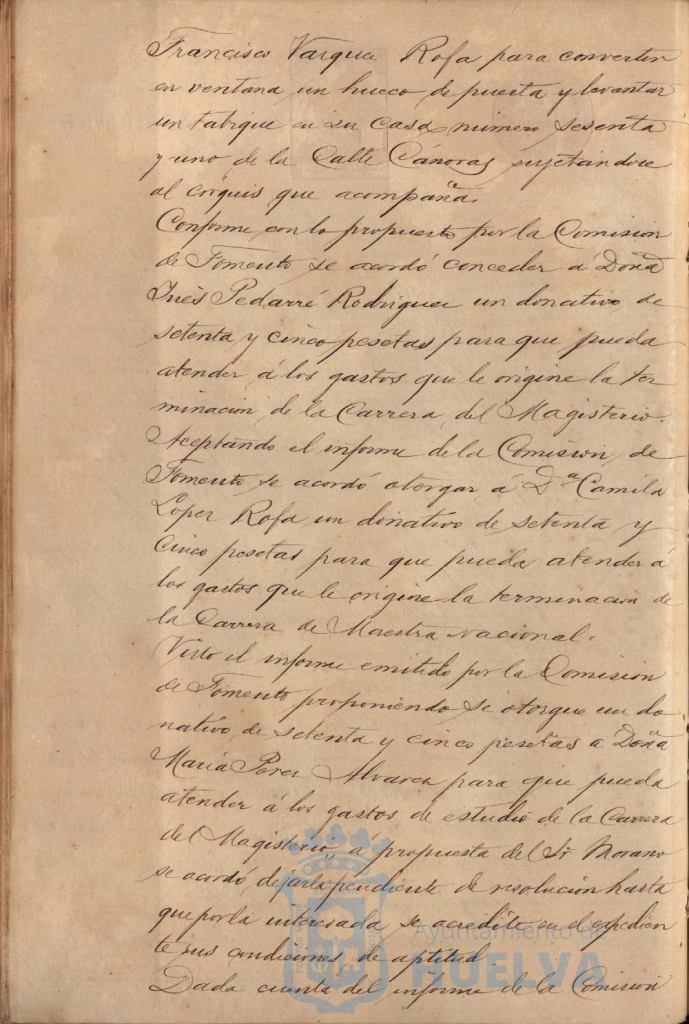 Francisco Vazquez Rofa para convertir
en ventana un hueco de puerta y levantar
un tabique en su casa número sesenta
y uno de la Calle Cánovas sujetandose
al cróquis que acompaña.
Conforme con lo propuesto por la Comision
de Fomento se acordó conceder á Doña
Inés Pedarré Rodriguez un donativo de
setenta y cinco pesetas para que pueda
atender á los gastos que le origine la ter
minacion de la Carrera del Magisterio.
Aceptando el informe de la Comision de
Fomento se acordó otorgar á Dª Camila
Lopez Rofa un donativo de setenta y
cinco pesetas para que pueda atender á
los gastos que le origine la terminacion de
la Carrera de Maestra Nacional.
Visto el informe emitido por la Comision
de Fomento proponiendo se otorgue un do
nativo de setenta y cinco pesetas a Doña
María Perez Alvarez para que pueda
atender á los gastos de estudio de la Carrera
del Magisterio á propuesta del Sr Morano
se acordó dejarla pendiente de resolucion hasta
que por la interesada se acredite en el expedien
te sus condiciones de aptitud
Dada cuenta del informe de la Comision
Ayuntamiento de
HUELVA